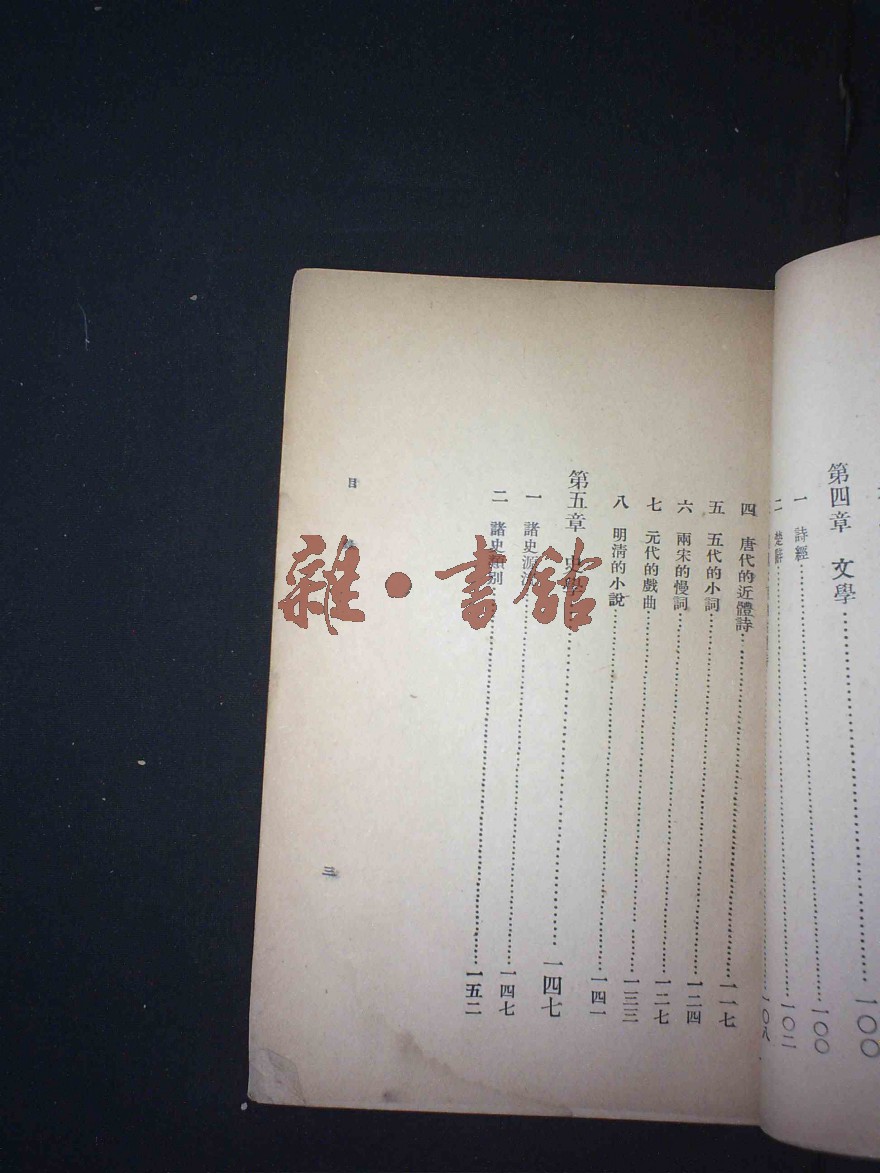 第四章　文學……一〇〇
一　詩經……一〇〇
二　楚辭……一〇二
一〇八
四　唐代的近體詩……一一七
五　五代的小詞……一二四
六　兩宋的慢詞……一二七
七　元代的戲曲……一三三
八　明清的小說……一四一
第五章　史學……一四七
一　諸史源流……一四七
二　諸史類別……一五二
目
三
雜·書館